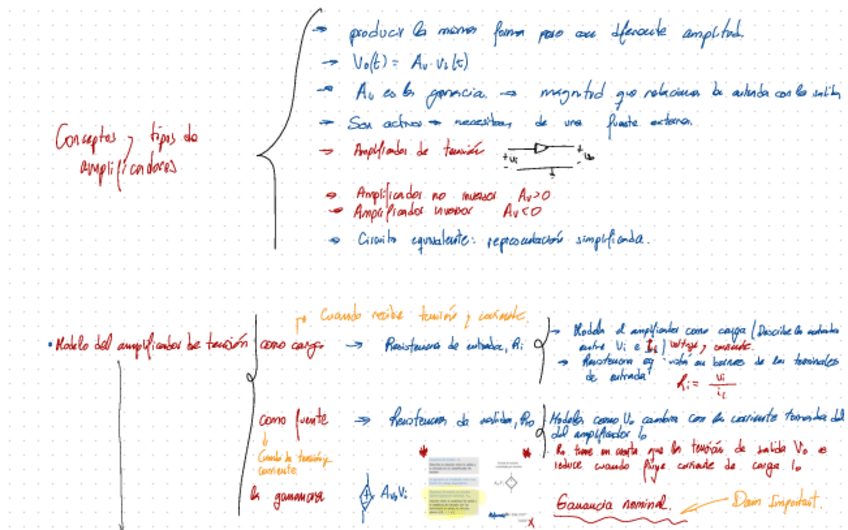 → producir la misma forma pero con diferente amplitud.
→ Vo(t) = Av · vi(t)
→ Av es la ganancia. → magnitud que relaciona la entrada con la salida
→ Son activos → necesitan de una fuente externa.
Conceptos y tipos de
amplificadores
→ Amplificador de tensión
+ Vi - + Vo -
→ Amplificador no inversor Av>0
→ Amplificador inversor Av<0
→ Circuito equivalente: representación simplificada.
Cuando recibe tensión y corriente.
• Modelo del amplificador de tensión
como carga → Resistencia de entrada, Ri
→ Modela el amplificador como carga (Describe la entrada
entre Vi e Ii) voltaje y corriente.
→ Resistencia eq vista en bornes de los terminales
de entrada Ri = Vi / ii
como fuente → Resistencia de salida, Ro
Modela como Vo cambia con la corriente tomada del
del amplificador Io
Cambio de tensión y
corriente
Ro tiene en cuenta que la tensión de salida Vo se
reduce cuando fluye corriente de carga Io
la ganancia Avo Vi
Ganancia nominal. ← Dam Important.